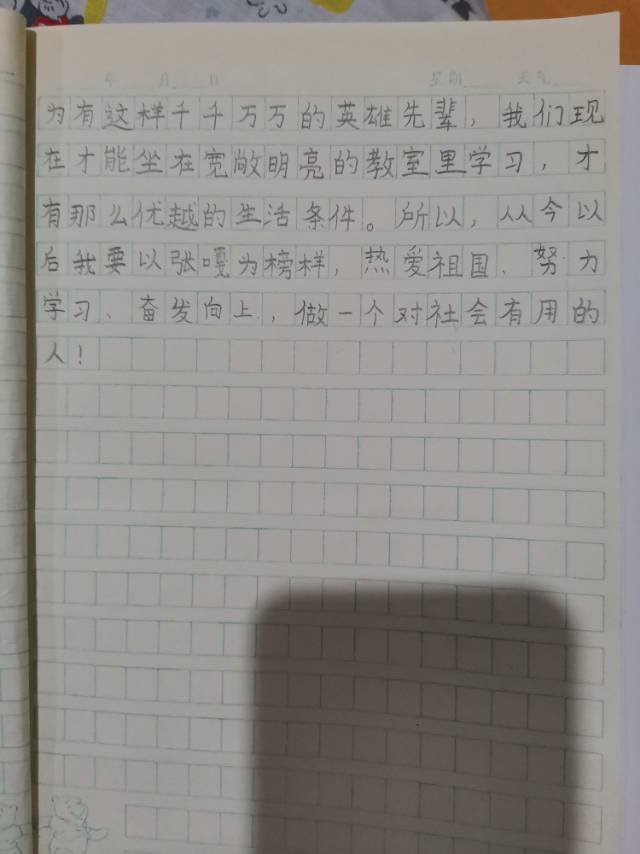 年 月 日 星期 天气
为有这样千千万万的英雄先辈，我们现
在才能坐在宽敞明亮的教室里学习，才
有那么优越的生活条件。所以，从今以
后我要以张嘎为榜样，热爱祖国、努力
学习、奋发向上，做一个对社会有用的
人！